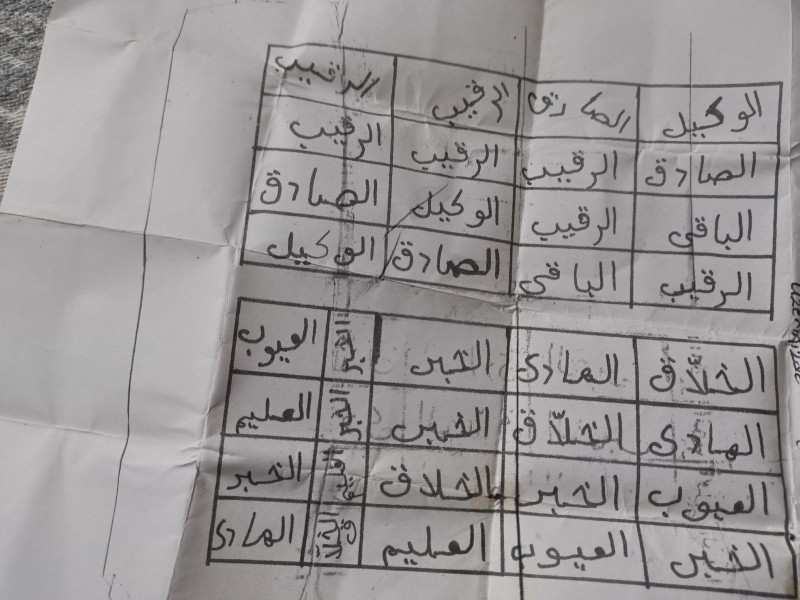 الوكيل الصادق الرقيب الرقيب
الصادق الرقيب الرقيب الرقيب
الباقى الرقيب الوكيل الصادق
الرقيب الباقى الصادق الوكيل
الخلّاق الهادى الخبير الخبير العيوب
الهادى الخلّاق الخبير الخبير العليم
العيوب الخبير الخلاق العليم الخبير
الخبير العيوب العليم الخلّاق الهادى